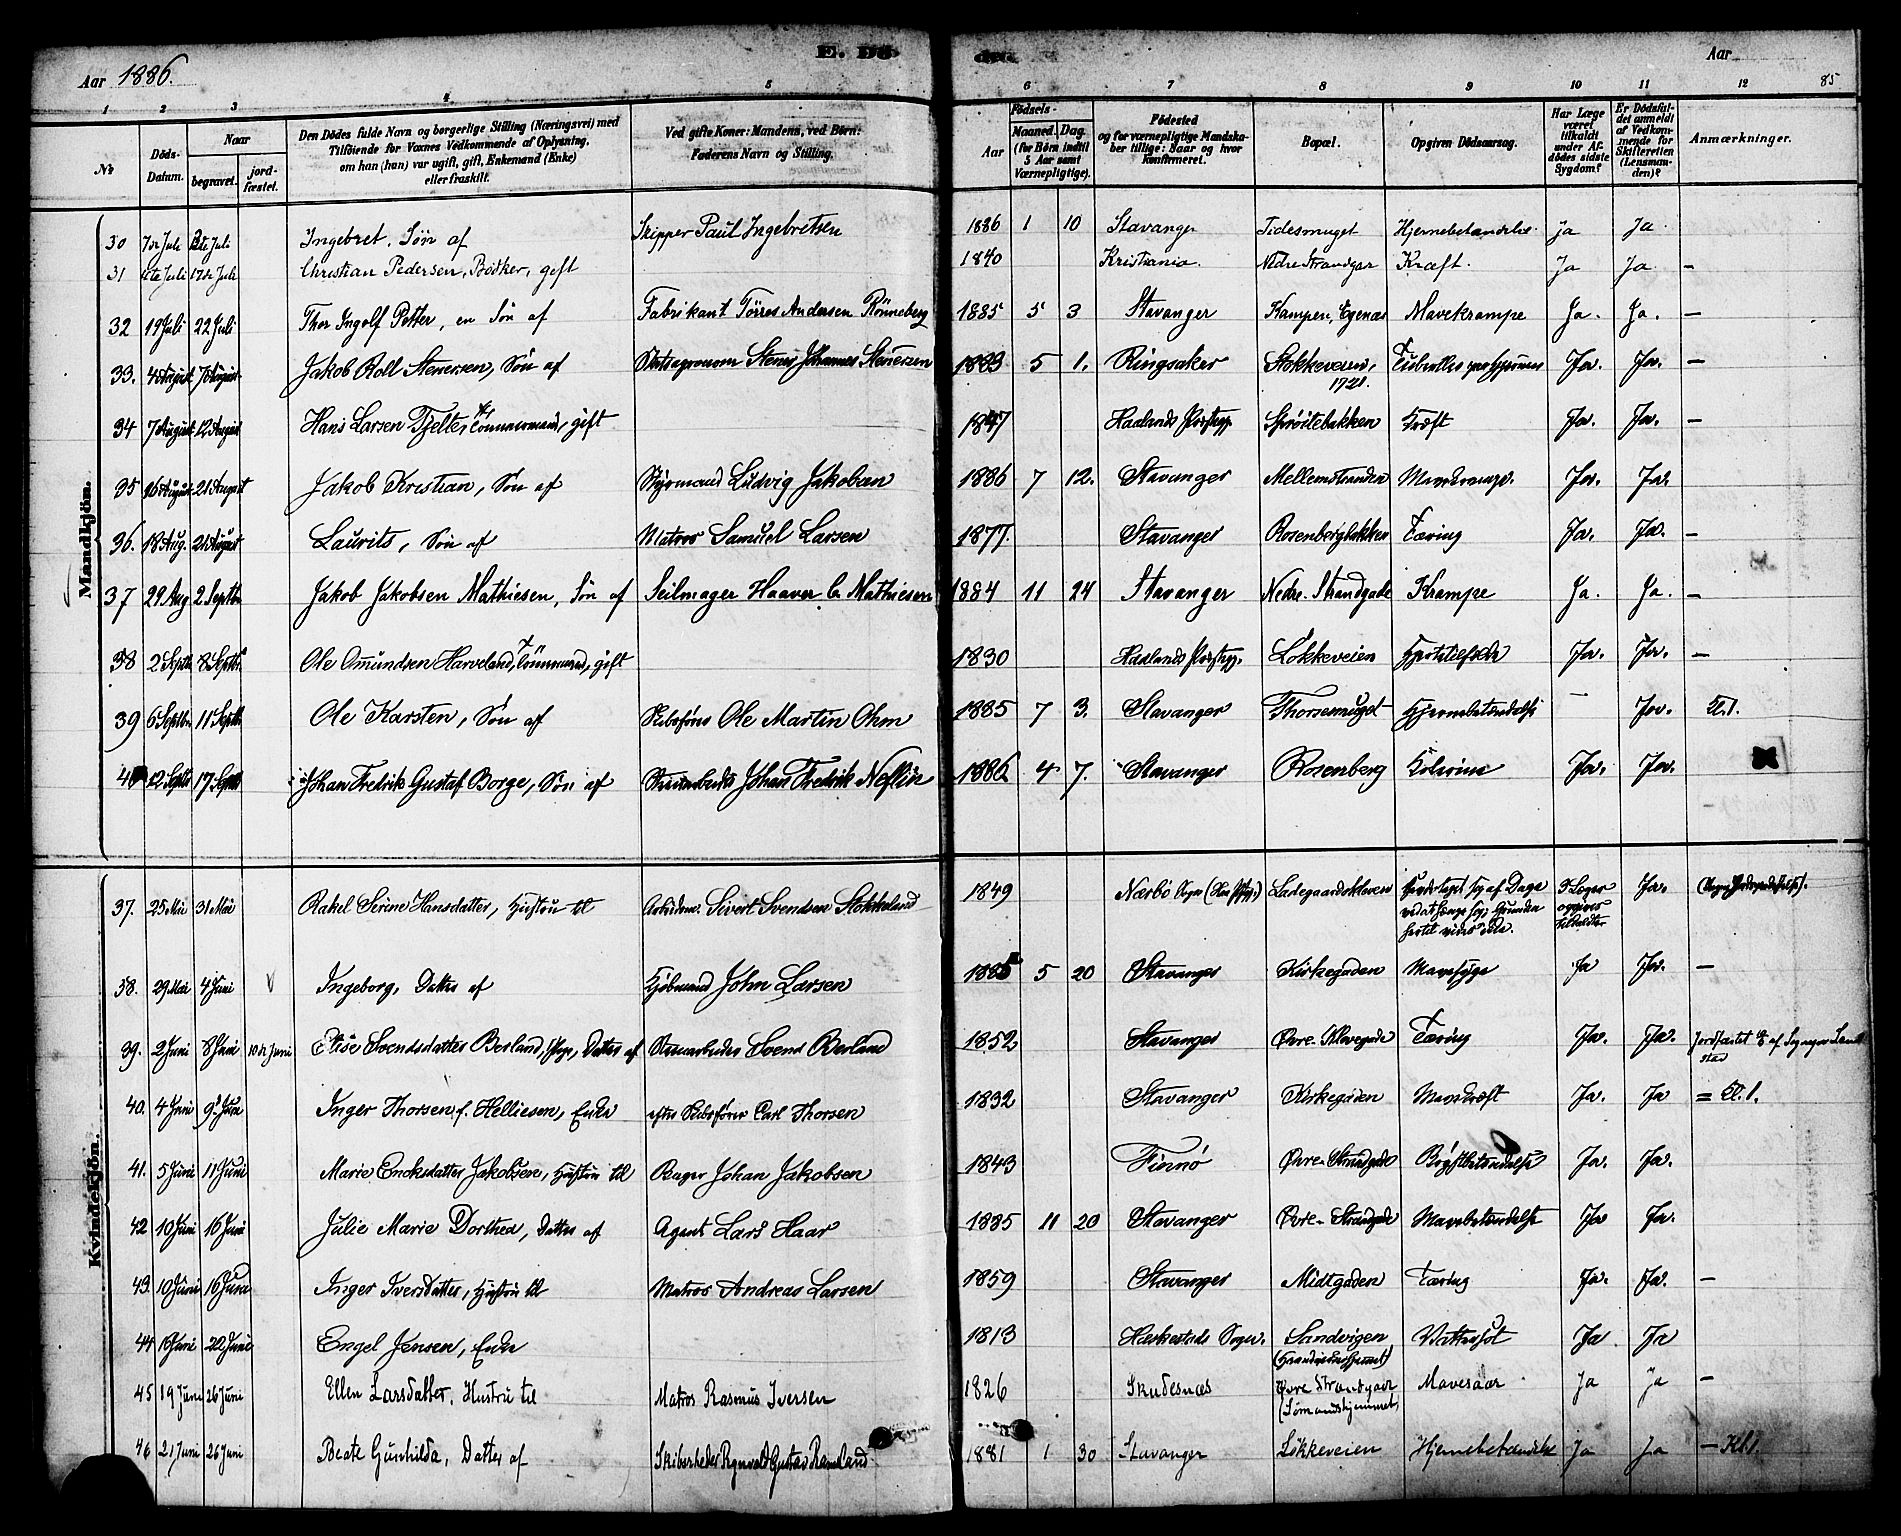 E. Dö-
den.
Aar 1886.
Aar
85
1 2 3 4 5 6 7 8 9 10 11 12
№
Döds-Datum.
Naar
begravet.
jord-fæstet.
Den Dödes fulde Navn og borgerlige Stilling (Næringsvei) med
Tilföiende for Voxnes Vedkommende af Oplysning,
om han (hun) var ugift, gift, Enkemand (Enke)
eller fraskilt.
Ved gifte Koner: Mandens, ved Börn:
Faderens Navn og Stilling.
Födsels-
Aar
Maaned. Dag.
(for Börn indtil
5 Aar samt
Værnepligtige).
Födested
og for værnepligtige Mandska-
ber tillige: Naar og hvor
konfirmeret.
Bopæl.
Opgiven Dödsaarsag.
Har Læge
været
tilkaldt
under Af-
dödes sidste
Sygdom?
Er Dödsfal-
det anmeldt
af Vedkom-
mende for
Skifteretten
(Lensman-
den)?
Anmærkninger.
Mandkjön.
30 7de Juli 12te Juli Ingebret, Sön af Skipper Paul Ingebretsen 1886 1 10 Stavanger Tidesmuget Hjernebetændelse Ja Ja
31 12te Juli 17de Juli Christian Pedersen, Bödker, gift 1840 Kristiania Nedre Strandgar Kræft. Ja Ja —
32 19 Juli 22 Juli Thor Ingolf Petter, en Sön af Fabrikant Törres Andersen Rönneberg 1885 5 3 Stavanger Kampen, Egenæs Mavekrampe Ja. Ja. —
33. 4 August 7 August Jakob Roll Stenersen, Sön af Johannes Stenersen 1883 5 1. Ringsaker Stokkeveien, 1721. Ja. Ja. —
34 7 August 12 August Hans Larsen Tjelte, Tömmermand, gift 1847 Haalands Præstegj. Spröitebakken Kræft Ja. Ja. —
35 16 August 21 August Jakob Kristian, Sön af Styrmand Ludvig Jakobsen 1886 7 12. Stavanger Mellemstranden Mavekrampe. Ja. Ja.
36. 18 Aug. 21 August Laurits, Sön af Matros Samuel Larsen 1877. Stavanger Rosenbergbakken Tæring Ja. Ja. —
37 29 Aug 2 Septbr Jakob Jakobsen Mathiesen, Sön af Seilmager Haaver C. Mathiesen 1884 11 24 Stavanger Nedre. Strandgade Krampe Ja. Ja. —
38 2 Septb 8 Septb. Ole Omundsen Harveland, Tömmermand, gift 1830 Haalands Præstegj. Lökkeveien Hjertelfeil Ja. Ja. —
39 6 Septbr 11 Septb Ole Karsten, Sön af Skibsförer Ole Martin Ohm 1885 7 3. Stavanger Thorsemuget Hjernebetændelse — Ja. Kl. 1.
40 12 Septb 17 Septb Johan Fredrik Gustaf Borge, Sön af Johan Fredrik Neflin 1886 4 7. Stavanger Rosenberg Kolerine Ja. Ja.
Kvindekjön.
37. 25 Mai 31 Mai Rakel Serine Hansdatter, Hustru til Arbeidsm. Sivert Svendsen Stokkeland 1849 Nærbö Sogn Ladegaardskleven af Dage ved at hænge sig, Grunden hertil vides ikke. 3 Læger opgives tilkaldte Ja.
38. 29 Mai 4 Juni Ingeborg, Datter af Kjöbmand John Larsen 1885 5 20 Stavanger Kirkegaden Mavesyge Ja Ja. —
39. 2 Juni 8 Juni 10de Juni Elise Svendsdatter Berland, Pige, Datter af Svend Berland 1852 Stavanger Övre. Klevegade Tæring Ja. Ja. Jordfæstet af Sogneprest
40. 4 Juni 9de Juni Inger Thorsen f. Helliesen, Enke efter Skibsförer Carl Thorsen 1832 Stavanger Kirkegaden Mavekræft Ja. Ja = Kl. 1.
41. 5 Juni 11 Juni Marie Enoksdatter Jakobsen, Hustru til Bager Johan Jakobsen 1843 Finnö Övre. Strandgade Brystbetændelse Ja. Ja.
42 10 Juni 16 Juni Julie Marie Dorthea, Datter af Agent Lars Haar 1885 11 20 Stavanger Övre. Strandgade Mavebetændelse Ja Ja.
43. 10 Juni 16 Juni Inger Iversdatter, Hustru til Matros Andreas Larsen 1859 Stavanger Midtgaden Tæring Ja. Ja. —
44 16 Juni 22 Juni Engel Jensen, Enke 1813 Hetlands Sogn. Sandvigen Vattersot Ja Ja
45 19 Juni 26 Juni Ellen Larsdatter, Hustru til Matros Rasmus Iversen 1826 Skudesnæs Övre Strandgade (Sömandshjemmet) Mavesaar Ja Ja —
46 21 Juni 26 Juni Beate Gunhilda, Datter af Skibsrheder Rognvald Gustav Ramsland 1881 1 30 Stavanger Lökkeveien Hjernebetændelse Ja Ja — Kl. 1.